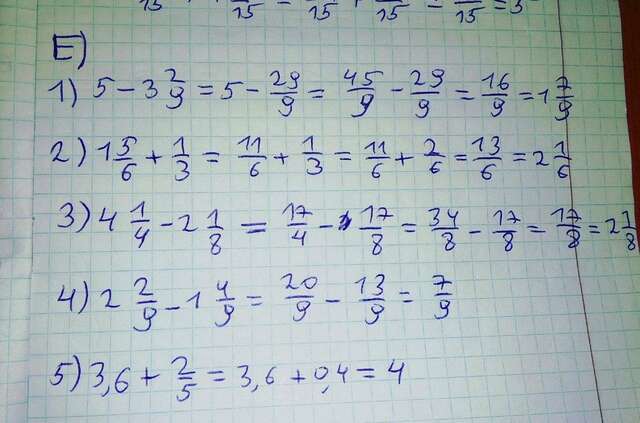 15 15 15 15 15 = 3
E)
1) 5 - 3 2/9 = 5 - 29/9 = 45/9 - 29/9 = 16/9 = 1 7/9
2) 1 5/6 + 1/3 = 11/6 + 1/3 = 11/6 + 2/6 = 13/6 = 2 1/6
3) 4 1/4 - 2 1/8 = 17/4 - 17/8 = 34/8 - 17/8 = 17/8 = 2 1/8
4) 2 2/9 - 1 4/9 = 20/9 - 13/9 = 7/9
5) 3,6 + 2/5 = 3,6 + 0,4 = 4